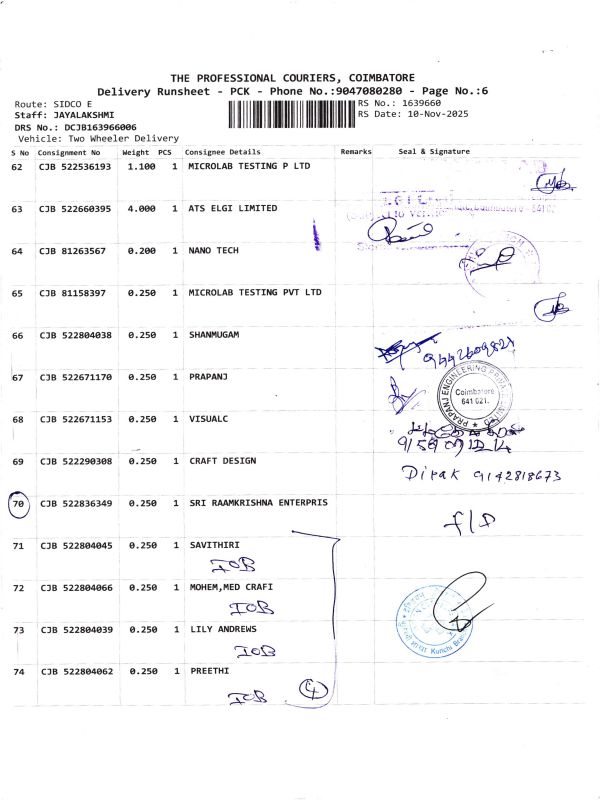 THE PROFESSIONAL COURIERS, COIMBATORE
Delivery Runsheet - PCK - Phone No.:9047080280 - Page No.:6
Route: SIDCO E
RS No.: 1639660
Staff: JAYALAKSHMI
RS Date: 10-Nov-2025
DRS No.: DCJB163966006
Vehicle: Two Wheeler Delivery
S No Consignment No Weight PCS Consignee Details Remarks Seal & Signature
62 CJB 522536193 1.100 1 MICROLAB TESTING P LTD
63 CJB 522660395 4.000 1 ATS ELGI LIMITED
64 CJB 81263567 0.200 1 NANO TECH
65 CJB 81158397 0.250 1 MICROLAB TESTING PVT LTD
66 CJB 522804038 0.250 1 SHANMUGAM
9442609821
67 CJB 522671170 0.250 1 PRAPANJ
PRAPANJ ENGINEERING PRIVATE LIMITED
Coimbatore
641 021.
68 CJB 522671153 0.250 1 VISUALC
69 CJB 522290308 0.250 1 CRAFT DESIGN
Dipak 9142818673
70 CJB 522836349 0.250 1 SRI RAAMKRISHNA ENTERPRIS
f/D
71 CJB 522804045 0.250 1 SAVITHIRI
IOB
72 CJB 522804066 0.250 1 MOHEM,MED CRAFI
IOB
73 CJB 522804039 0.250 1 LILY ANDREWS
IOB
Kurichi Branch
74 CJB 522804062 0.250 1 PREETHI
IOB
4